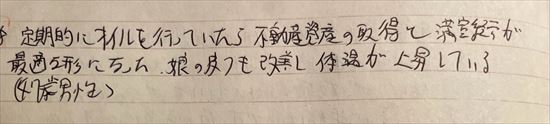 定期的にオイルを行っていたら 不動産資産の取得と 満室経営が
最適な形になった. 娘の皮フも改善し 体温が上昇している
(47歳男性)